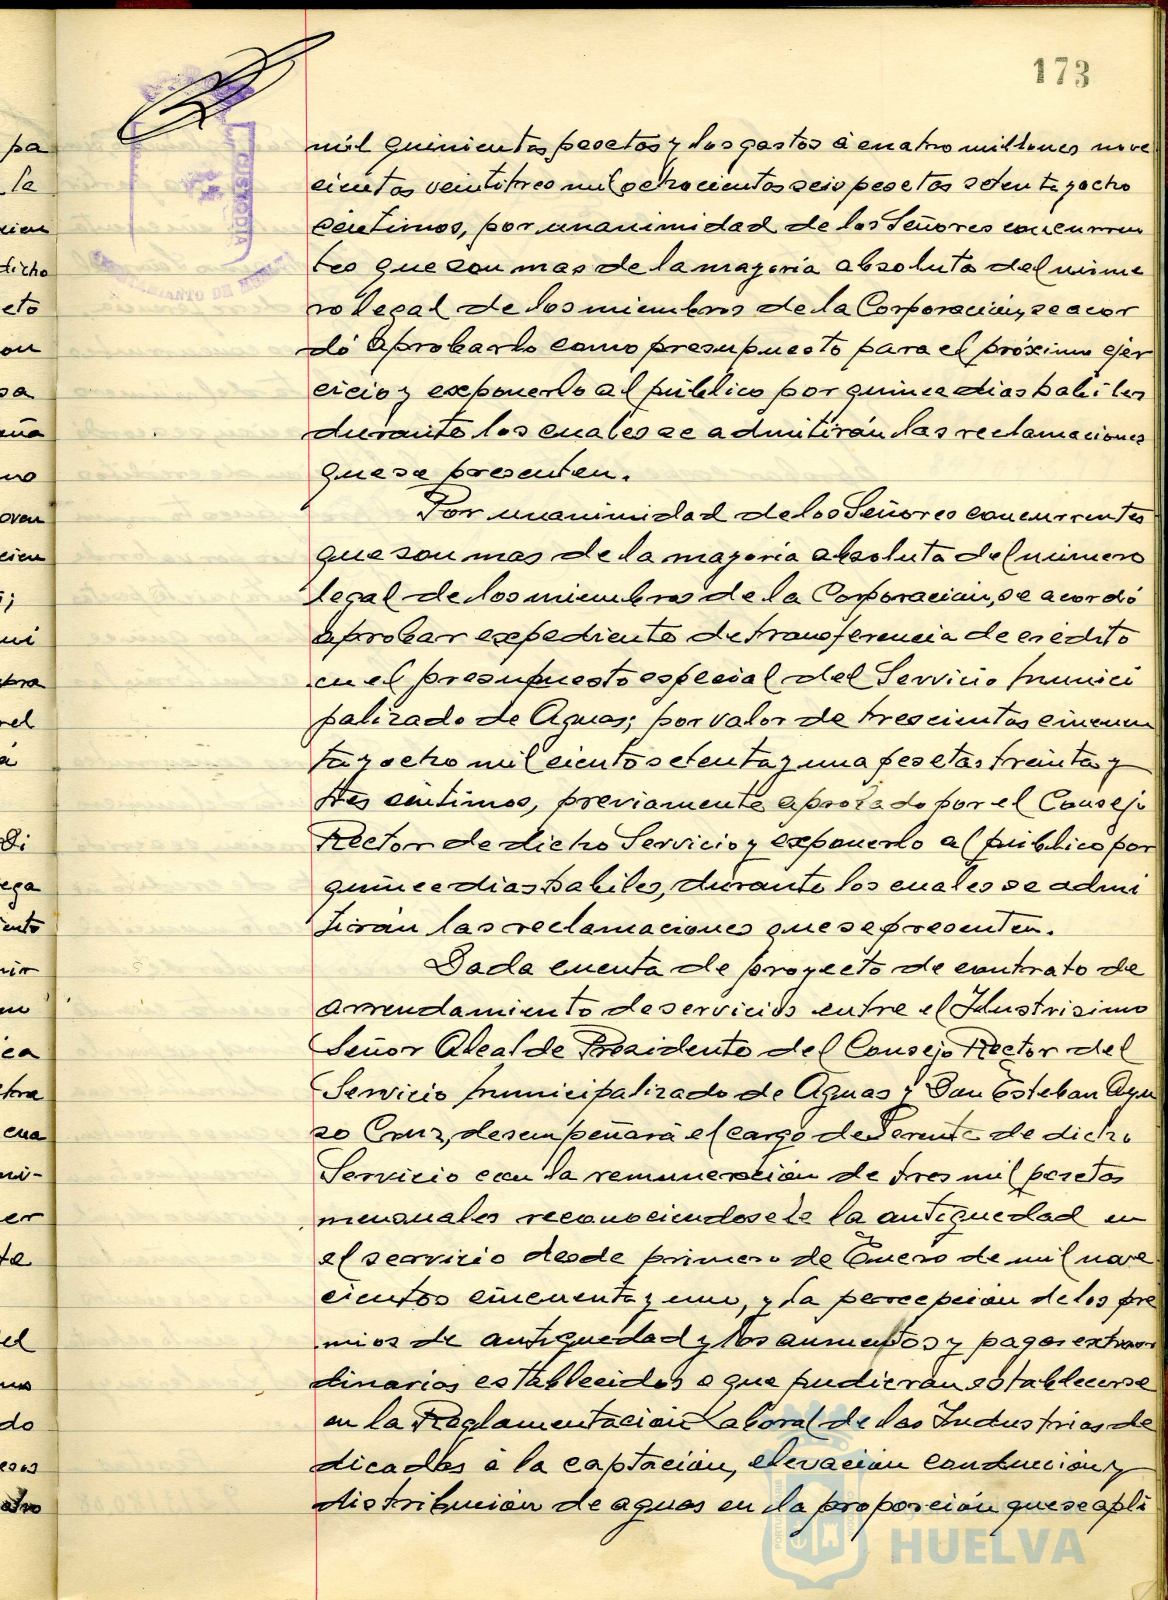 173
mil quinientas pesetas y los gastos á cuatro millones nove
cientas veintitres mil ochocientas seis pesetas setenta y ocho
céntimos, por unanimidad de los Señores concurren
tes que son mas de la mayoria absoluta del núme
ro legal de los miembros de la Corporación, se acor
dó aprobarlo como presupuesto para el próximo ejer
cicio y exponerlo al público por quince dias habiles
durante los cuales se admitirán las reclamaciones
que se presenten.
Por unanimidad de los Señores concurrentes
que son mas de la mayoria absoluta del número
legal de los miembros de la Corporación, se acordó
aprobar expediente de transferencia de crédito
en el presupuesto especial del Servicio Munici
palizado de Aguas; por valor de trescientas cincuen
ta y ocho mil ciento setenta y una pesetas treinta y
tres céntimos, previamente aprobado por el Consejo
Rector de dicho Servicio y exponerlo al público por
quince dias habiles, durante los cuales se admi
tirán las reclamaciones que se presenten.
Dada cuenta de proyecto de contrato de
arrendamiento de servicios entre el Ilustrisimo
Señor Alcalde Presidente del Consejo Rector del
Servicio Municipalizado de Aguas y Don Esteban
so Cruz, desempeñará el cargo de Gerente de dicho
Servicio con la remuneración de tres mil pesetas
mensuales reconociendosele la antiguedad en
el servicio desde primero de Enero de mil nove
cientos cincuenta y uno, y la percepción de los pre
mios de antiguedad y los aumentos y pagas extraor
dinarias establecidos o que pudieran establecerse
en la Reglamentación Laboral de las Industrias de
dicadas a la captación, elevación conducción y
distribución de aguas en la proporción que se apli
CUSTODIA
AYUNTAMIENTO DE HUELVA
HUELVA